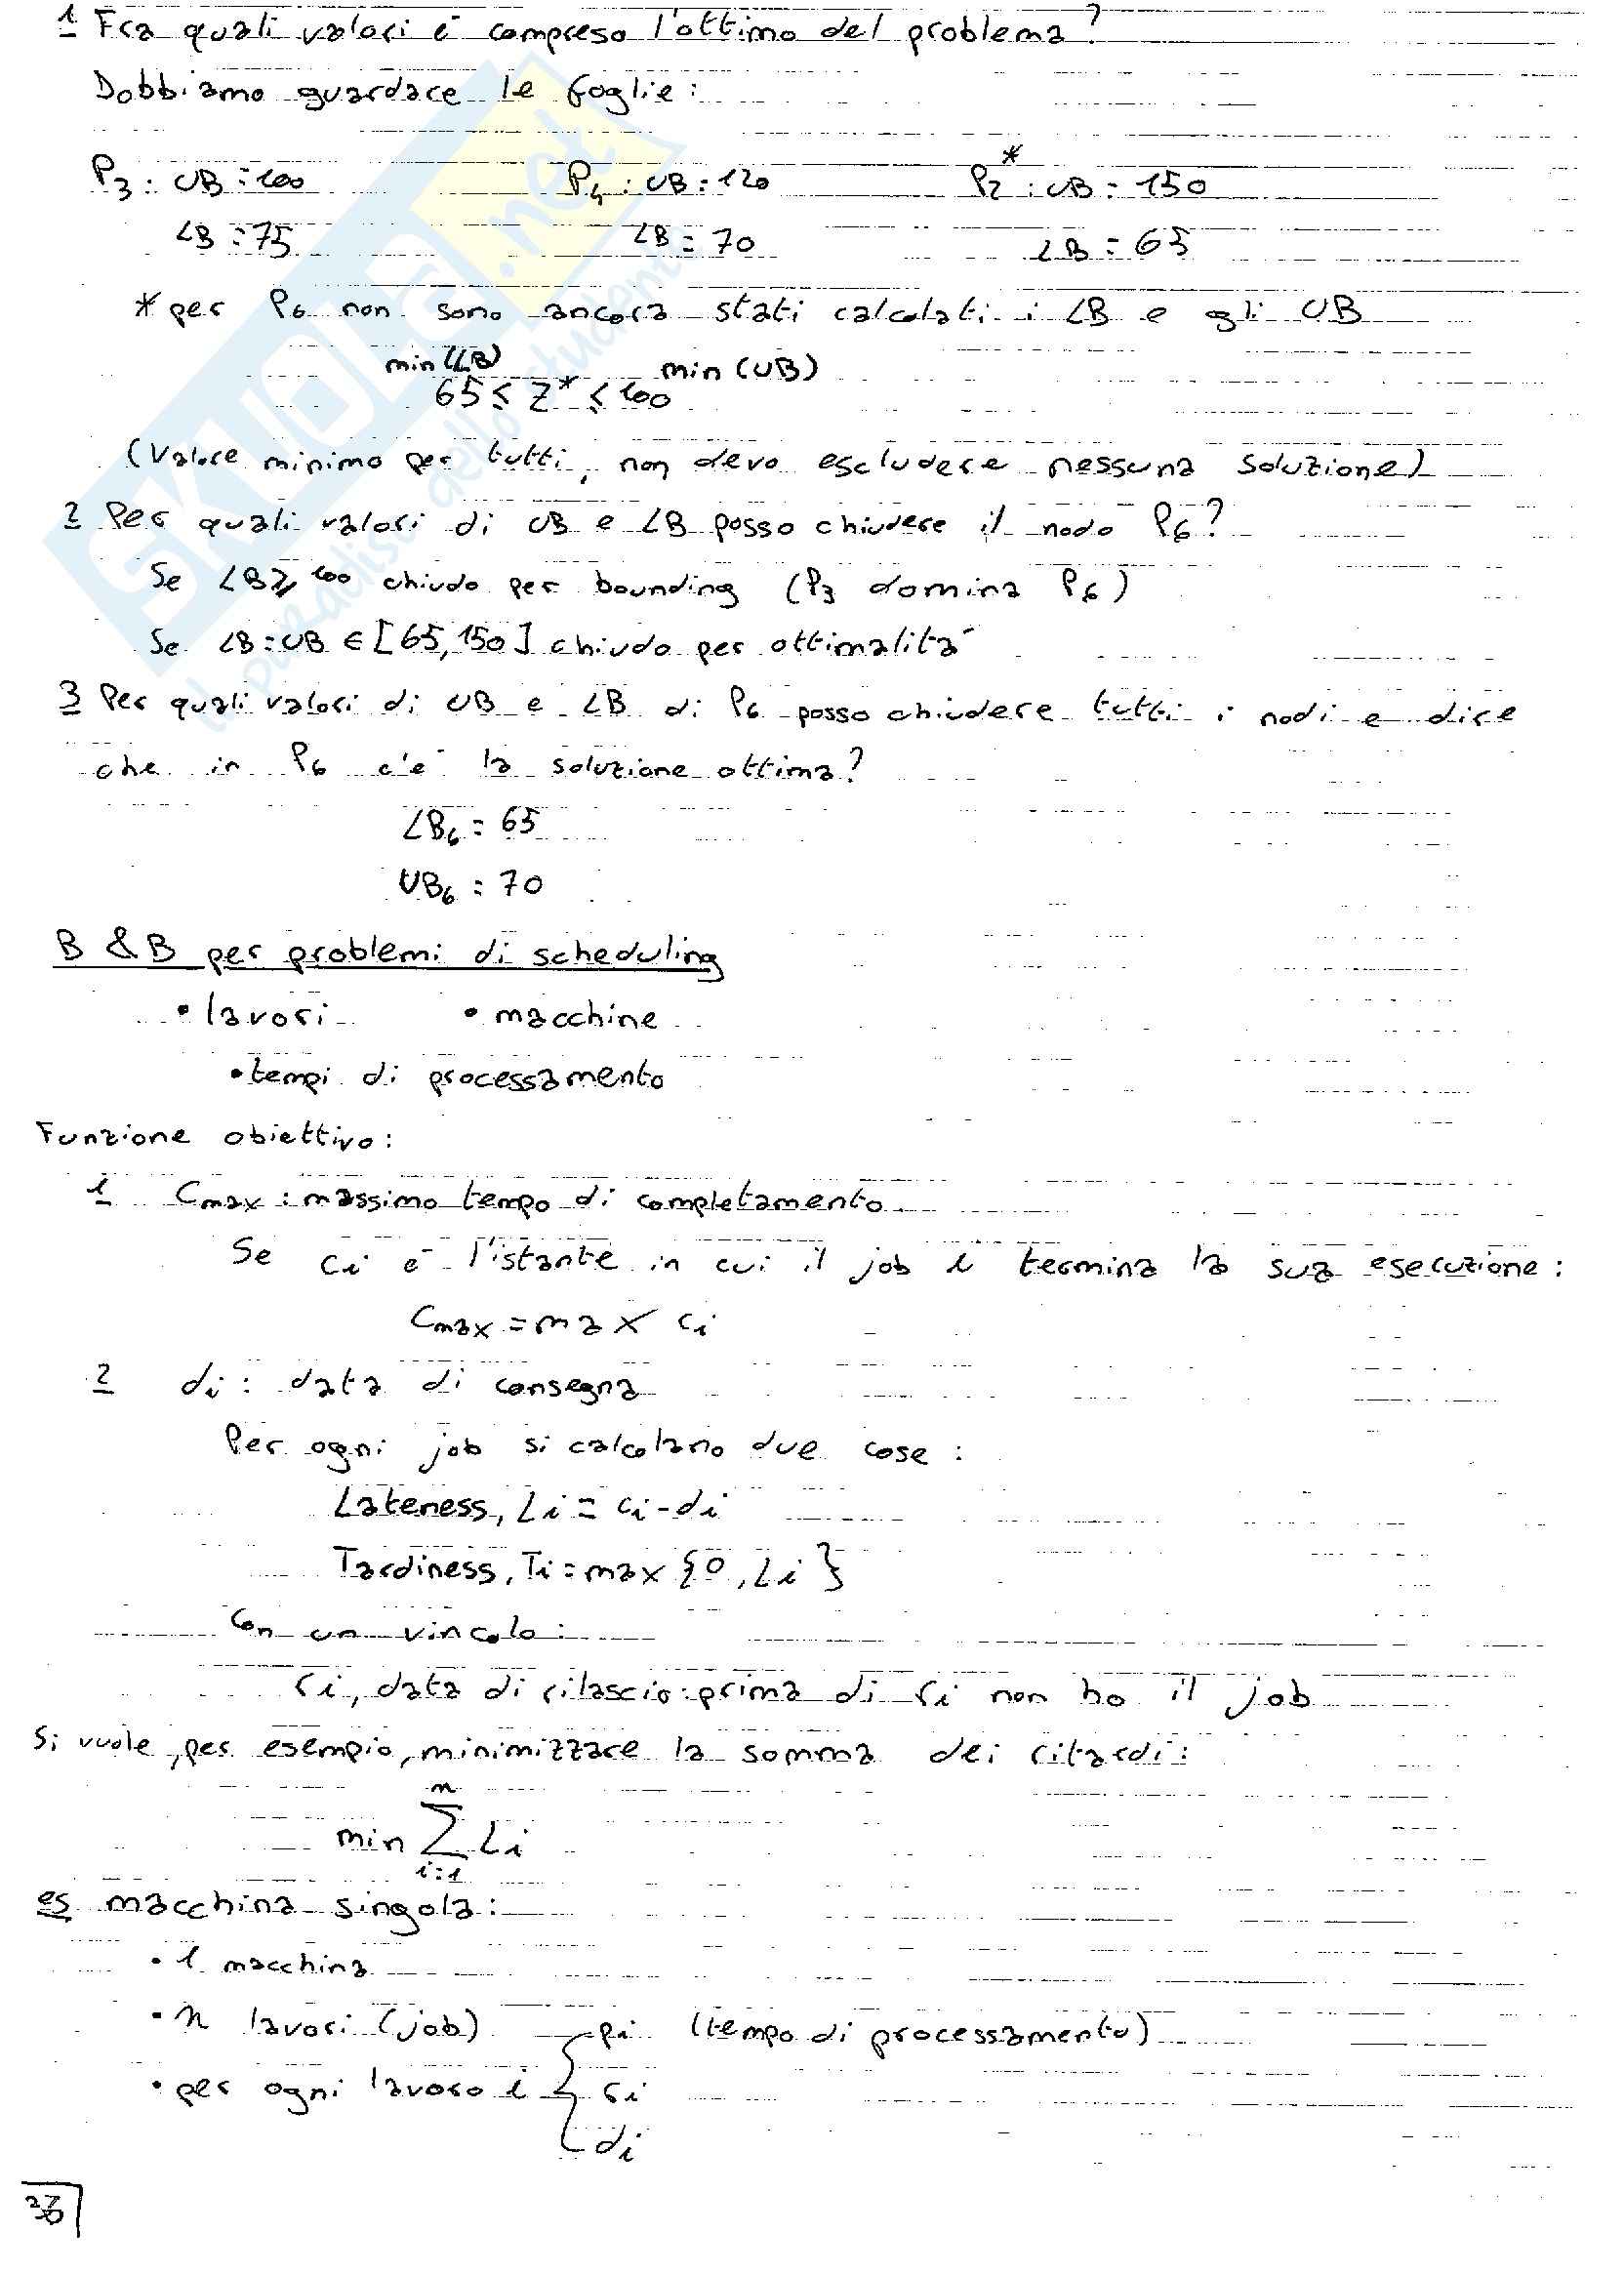 1 Fra quali valori è compreso l'ottimo del problema?
Dobbiamo guardare le foglie:
P3: UB=100 P4: UB=120 P2*: UB=150
LB=75 LB=70 LB=65
* per P6 non sono ancora stati calcolati i LB e gli UB
min(LB) min(UB)
65 ≤ Z* ≤ 100
(Valore minimo per tutti, non devo escludere nessuna soluzione)
2 Per quali valori di UB e LB posso chiudere il nodo P6?
Se LB ≥ 100 chiudo per bounding (P3 domina P6)
Se LB=UB ∈ [65,150] chiudo per ottimalità
3 Per quali valori di UB e LB di P6 posso chiudere tutti i nodi e dire
che in P6 c'è la soluzione ottima?
LB6 = 65
UB6 = 70
B & B per problemi di scheduling
• lavori • macchine
• tempi di processamento
Funzione obiettivo:
1 Cmax: massimo tempo di completamento
Se ci è l'istante in cui il job i termina la sua esecuzione:
Cmax = max ci
2 di: data di consegna
Per ogni job si calcolano due cose:
Lateness, Li = ci-di
Tardiness, Ti = max {0, Li}
Con un vincolo:
ri, data di rilascio: prima di ri non ho il job
Si vuole, per esempio, minimizzare la somma dei ritardi:
min ∑ⁿᵢ₌₁ Li
es macchina singola:
• 1 macchina
• n lavori (job) pi (tempo di processamento)
• per ogni lavoro i { ri
di
SKUOLA.net
il paradiso dello studente